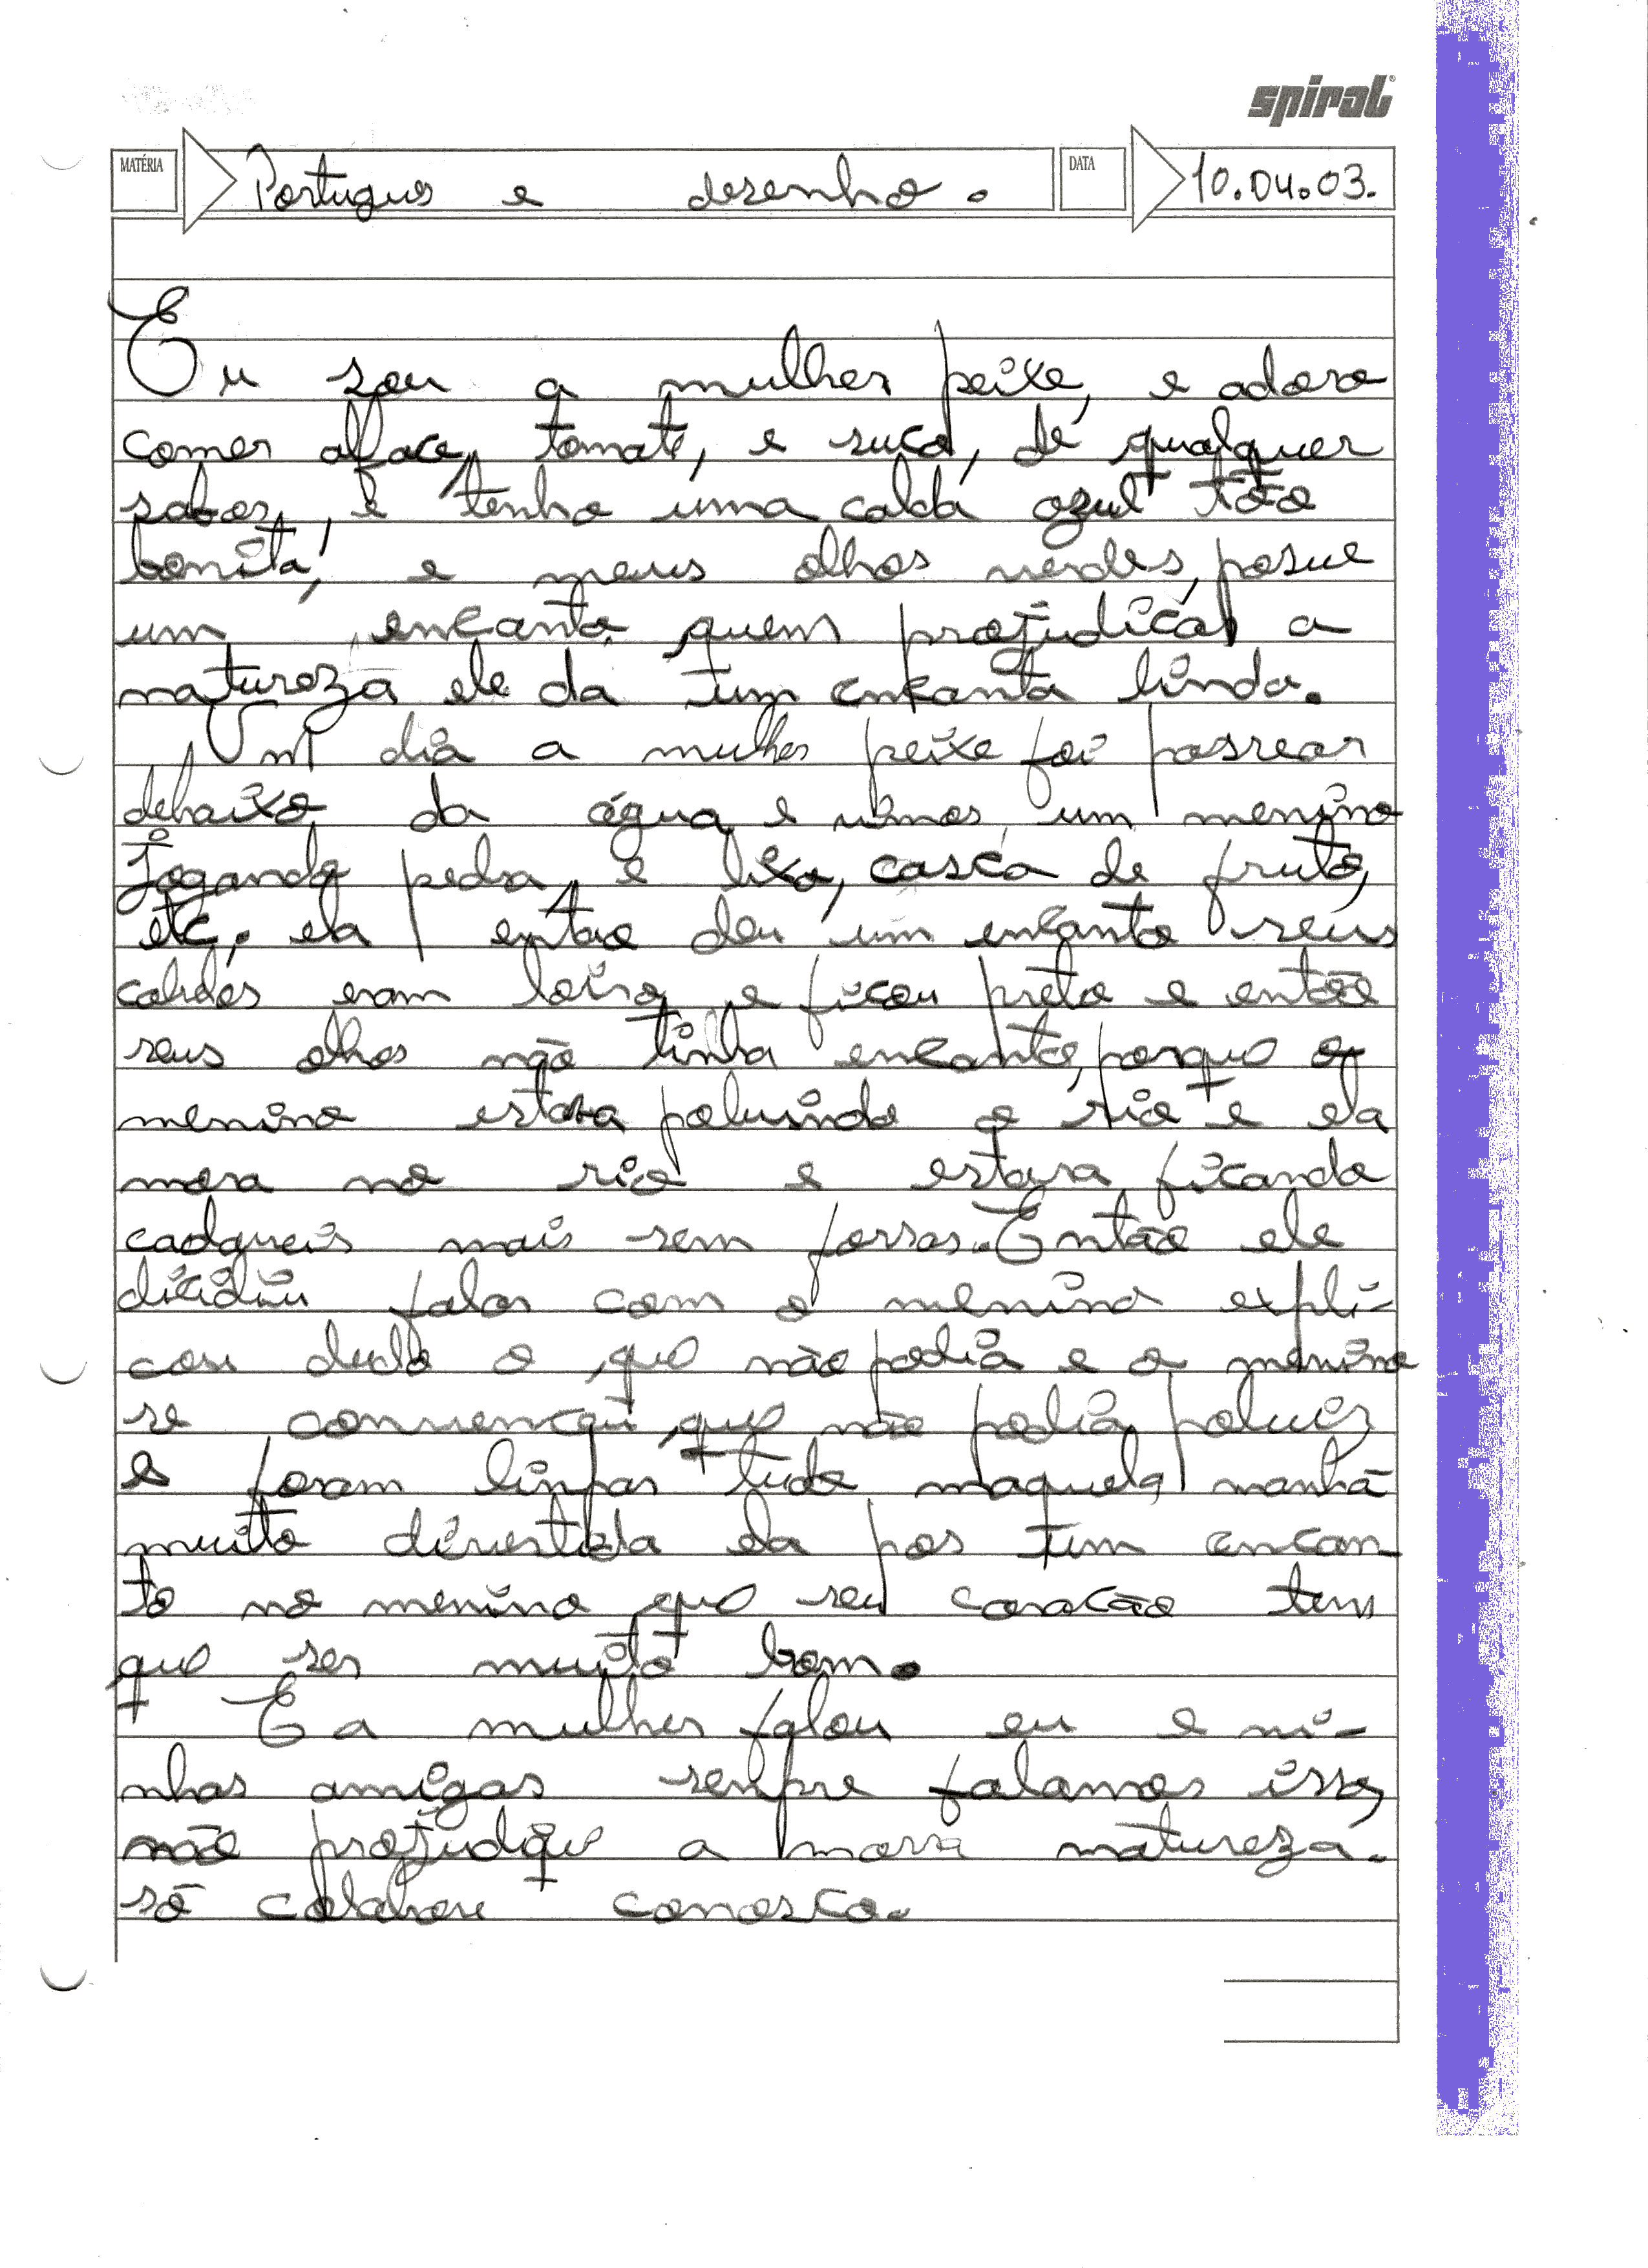 spiral
MATÉRIA Portugues e desenho. DATA 10.04.03.
Eu sou a mulher peixe, e adoro
comer alface, tomate, e suco, de qualquer
sabor, e tenho uma calda azul tão
bonita, e meus olhos verdes, posue
um encanto quem projudicar a
natureza ele da um encanta lindo.
Um dia a mulher peixe foi passear
debaixo da água e vimos um menino
jogando pedra, e lixo, casca de fruta,
etc. ela então deu um encanto seus
cabelos eram loiro e ficou preto e então
seus olhos não tinha encanto, porque o
menino estava poluindo o rio e ela
mora no rio e estava ficando
cadqueis mais sem forsas. Então ele
dicidiu falar com o menino expli-
cou dudo o que não podia e o menino
se convenceu que não podia poluir
e foram linpar tudo naquela manhã
muito divertida ela pos um encan-
to no menino que seu coracão tem
que ser muito bom.
E a mulher falou eu e mi-
nhas amigas senpre falamos isso,
não projudique a nossa natureza.
só colabore conosco.